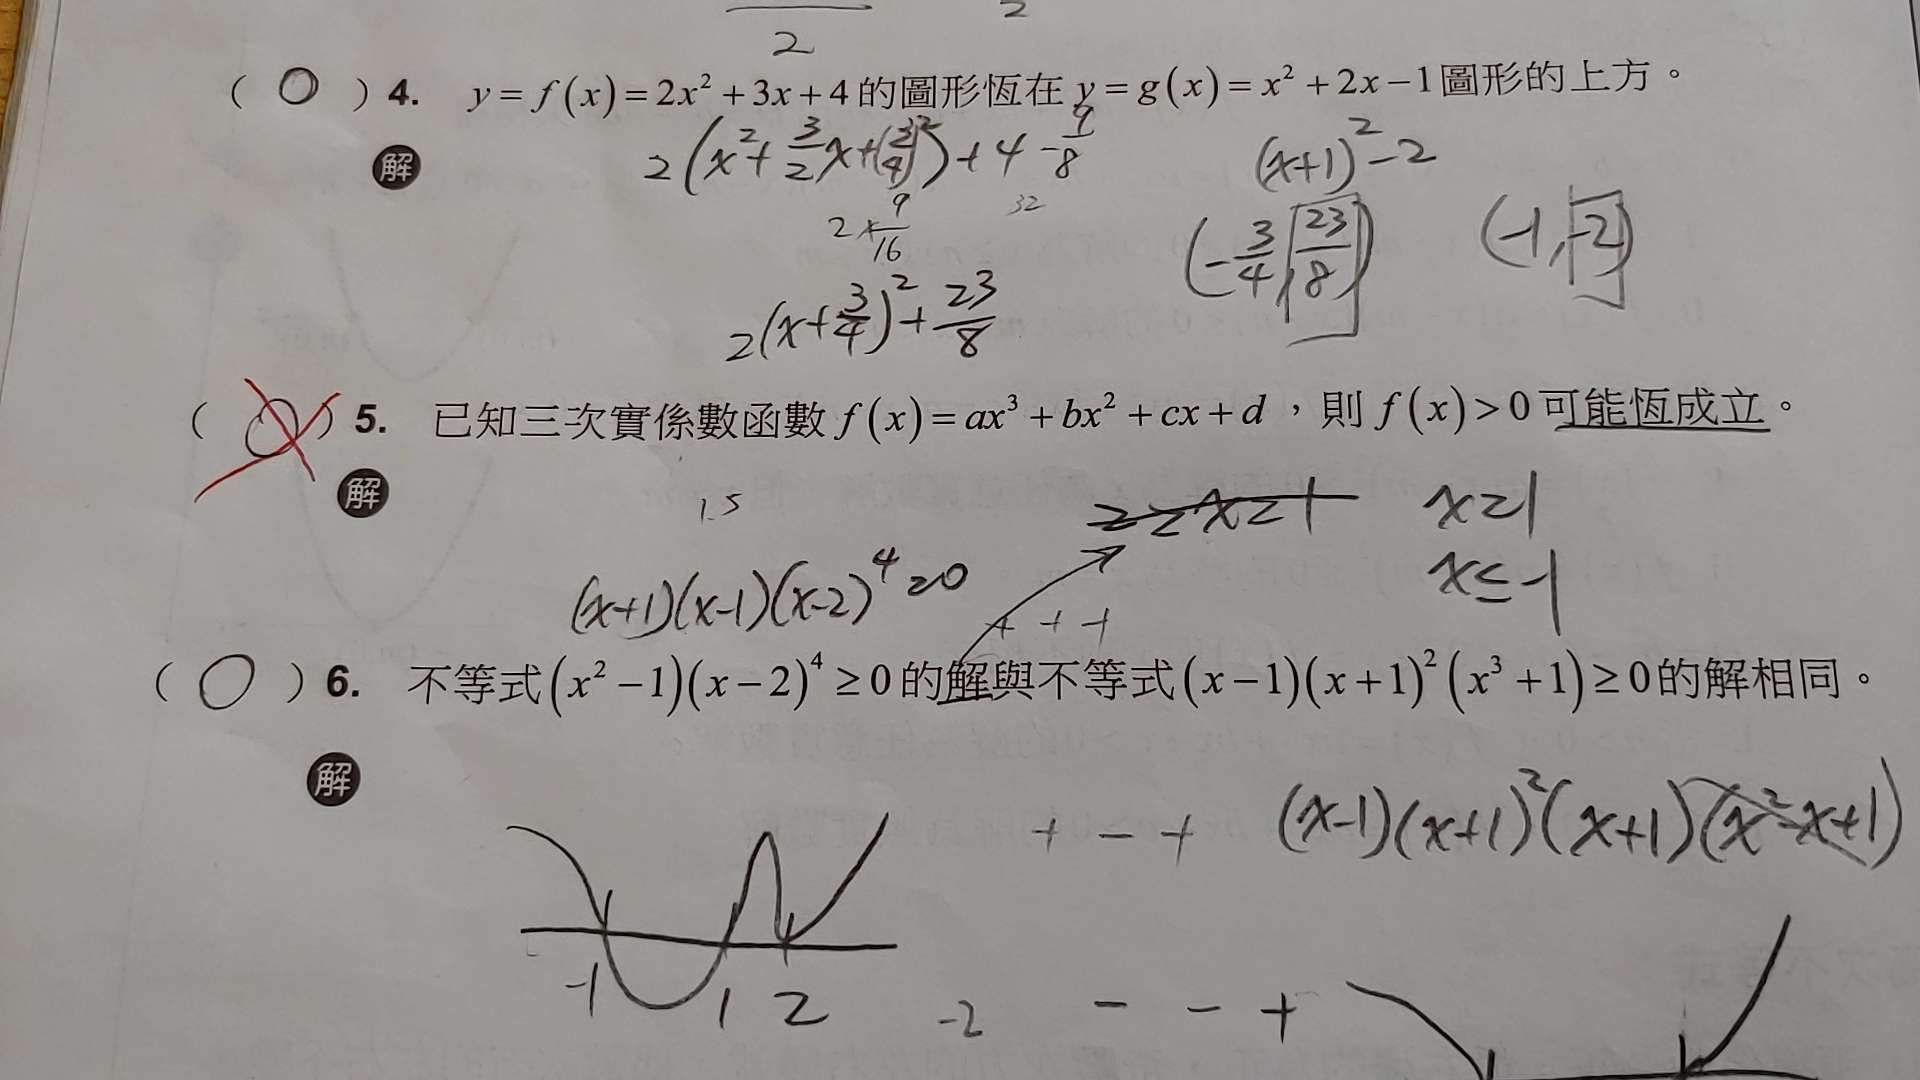 2
2
( O ) 4. y = f(x) = 2x² + 3x + 4 的圖形恆在 y = g(x) = x² + 2x − 1 圖形的上方。
解 2(x² + 3/2 x + (3/4)²) + 4 − 9/8 (x+1)² − 2
2 × 9/16 32 (−3/4, 23/8) (−1, −2)
2(x + 3/4)² + 23/8
( O ) 5. 已知三次實係數函數 f(x) = ax³ + bx² + cx + d ,則 f(x) > 0 可能恆成立。
解 1.5 2 ≥ x ≥ 1 x ≥ 1
(x+1)(x-1)(x-2)⁴ ≥ 0 x ≤ −1
+ + +
( O ) 6. 不等式 (x² − 1)(x − 2)⁴ ≥ 0 的解與不等式 (x − 1)(x + 1)² (x³ + 1) ≥ 0 的解相同。
解
+ − + (x-1)(x+1)²(x+1)(x²-x+1)
−1 1 2 −2 − − +